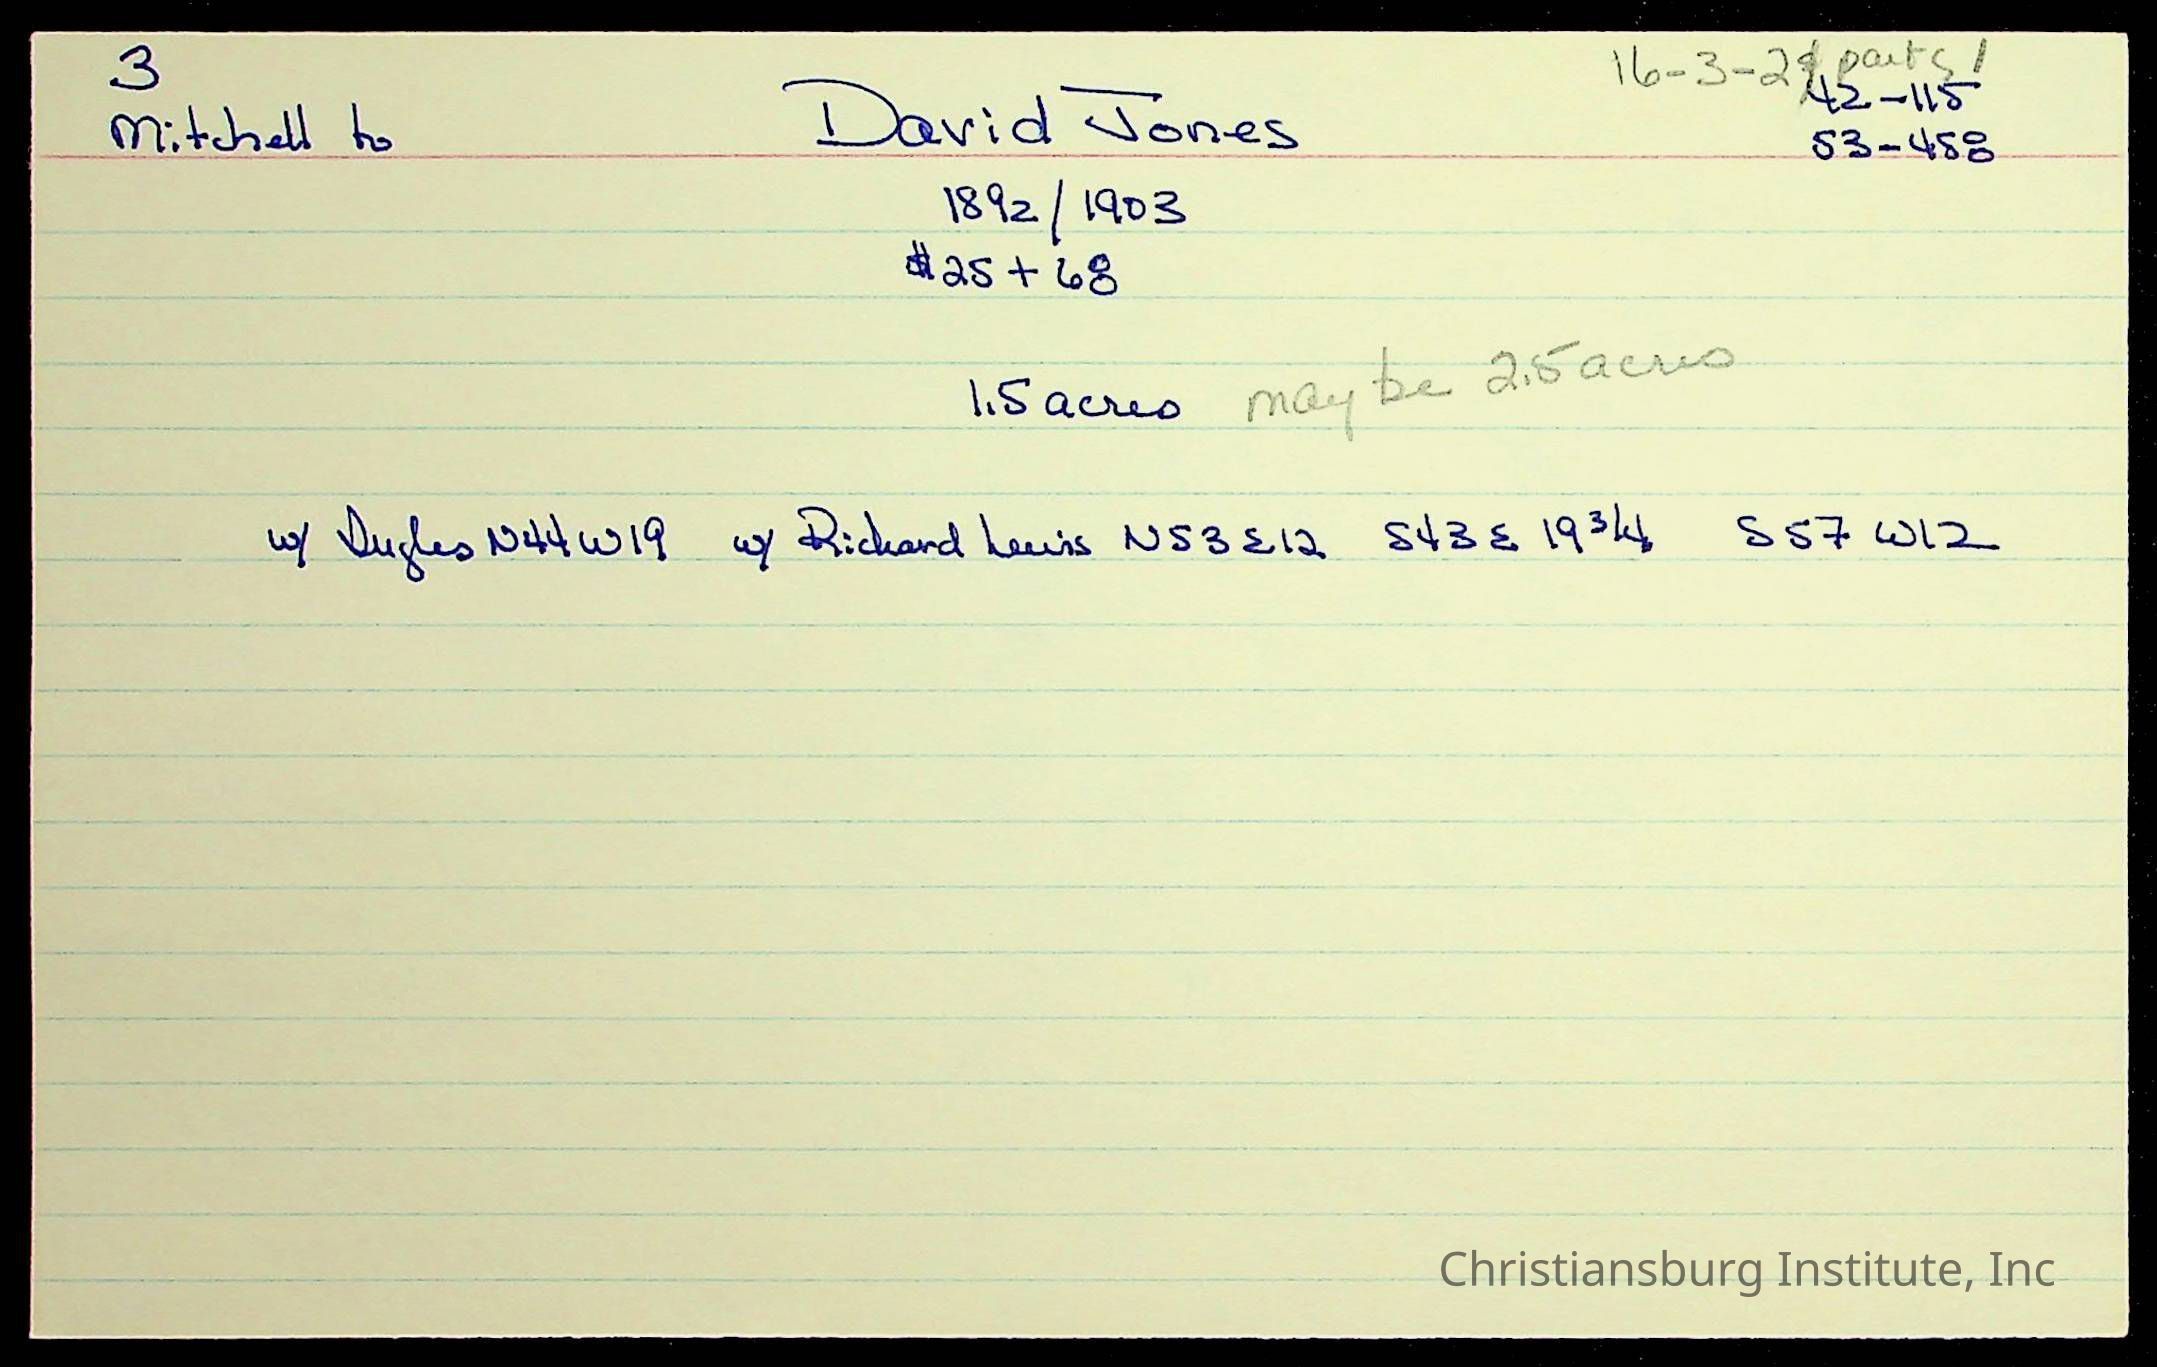 3
16-3-2 parts 1
Mitchell to
David Jones
42-115
53-458
1892/1903
$25 + 68
1.5 acres may be 2.5 acres
w/ N44W19 w/ Richard Lewis N53E12 S43E 19 3/4 S57 W12
Christiansburg Institute, Inc